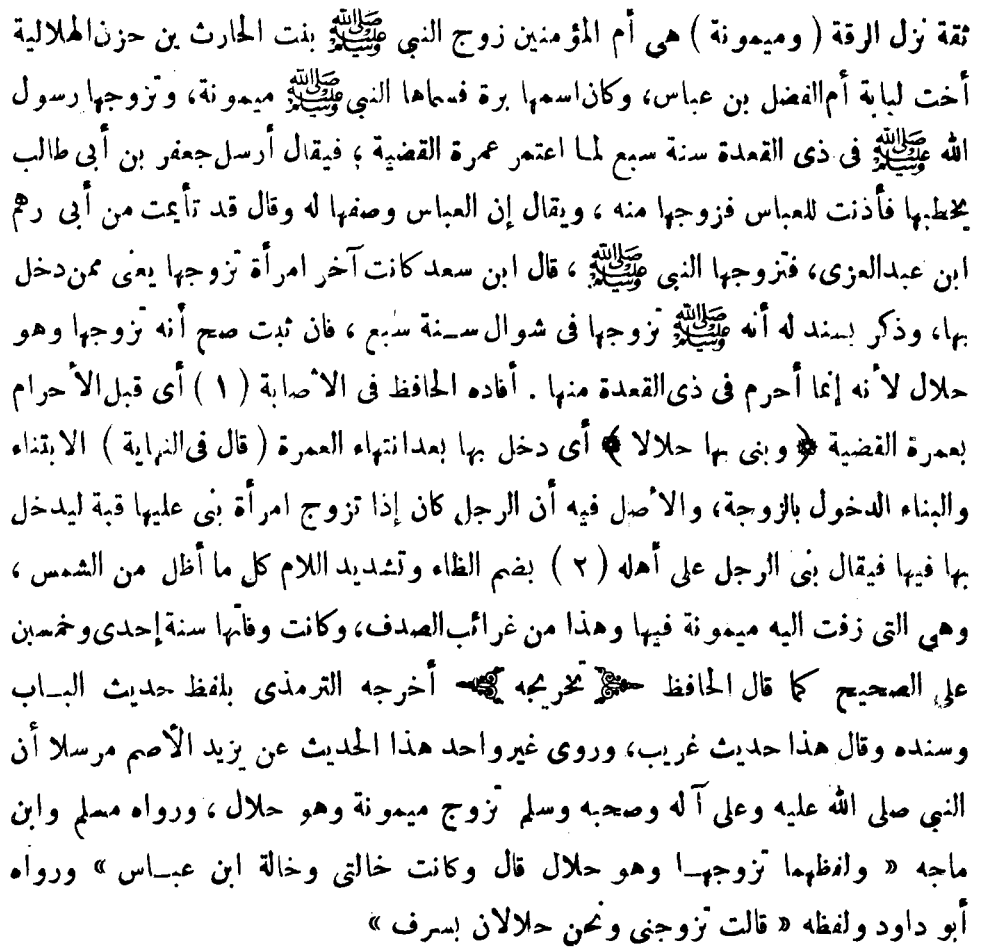 ثقة نزل الرقة ( وميمونة ) هي أم المؤمنين زوج النبي ﷺ بنت الحارث بن حزن الهلالية
أخت لبابة أم الفضل بن عباس، وكان اسمها برة فسماها النبي ﷺ ميمونة، وتزوجها رسول
الله ﷺ فى ذى القعدة سنة سبع لما اعتمر عمرة القضية ؛ فيقال أرسل جعفر بن أبى طالب
يخطبها فأذنت للعباس فزوجها منه ، ويقال إن العباس وصفها له وقال قد تأيمت من أبى رهم
ابن عبد العزى، فتزوجها النبى ﷺ ، قال ابن سعد كانت آخر امرأة تزوجها يعنى ممن دخل
بها، وذكر بسند له أنه ﷺ تزوجها فى شوال سنة سبع ، فان ثبت صح أنه تزوجها وهو
حلال لأنه إنما أحرم فى ذى القعدة منها . أفاده الحافظ فى الأصابة ( ١ ) أى قبل الأحرام
بعمرة القضية ﴿ وبنى بها حلالا ﴾ أى دخل بها بعد انتهاء العمرة ( قال فى النهاية ) الابتناء
والبناء الدخول بالزوجة، والأصل فيه أن الرجل كان إذا تزوج امرأة بنى عليها قبة ليدخل
بها فيها فيقال بنى الرجل على أهله ( ٢ ) بضم الظاء وتشديد اللام كل ما أظل من الشمس ،
وهى التى زفت اليه ميمونة فيها وهذا من غرائب الصدف، وكانت وفاتها سنة إحدى وخمسين
على الصحيح كما قال الحافظ ﴿ تخريجه ﴾ أخرجه الترمذى بلفظ حديث الباب
وسنده وقال هذا حديث غريب، وروى غير واحد هذا الحديث عن يزيد الأصم مرسلا أن
النبى صلى الله عليه وعلى آله وصحبه وسلم تزوج ميمونة وهو حلال ، ورواه مسلم وابن
ماجه « ولفظهما تزوجها وهو حلال قال وكانت خالتى وخالة ابن عباس » ورواه
أبو داود ولفظه « قالت تزوجنى ونحن حلالان بسرف »